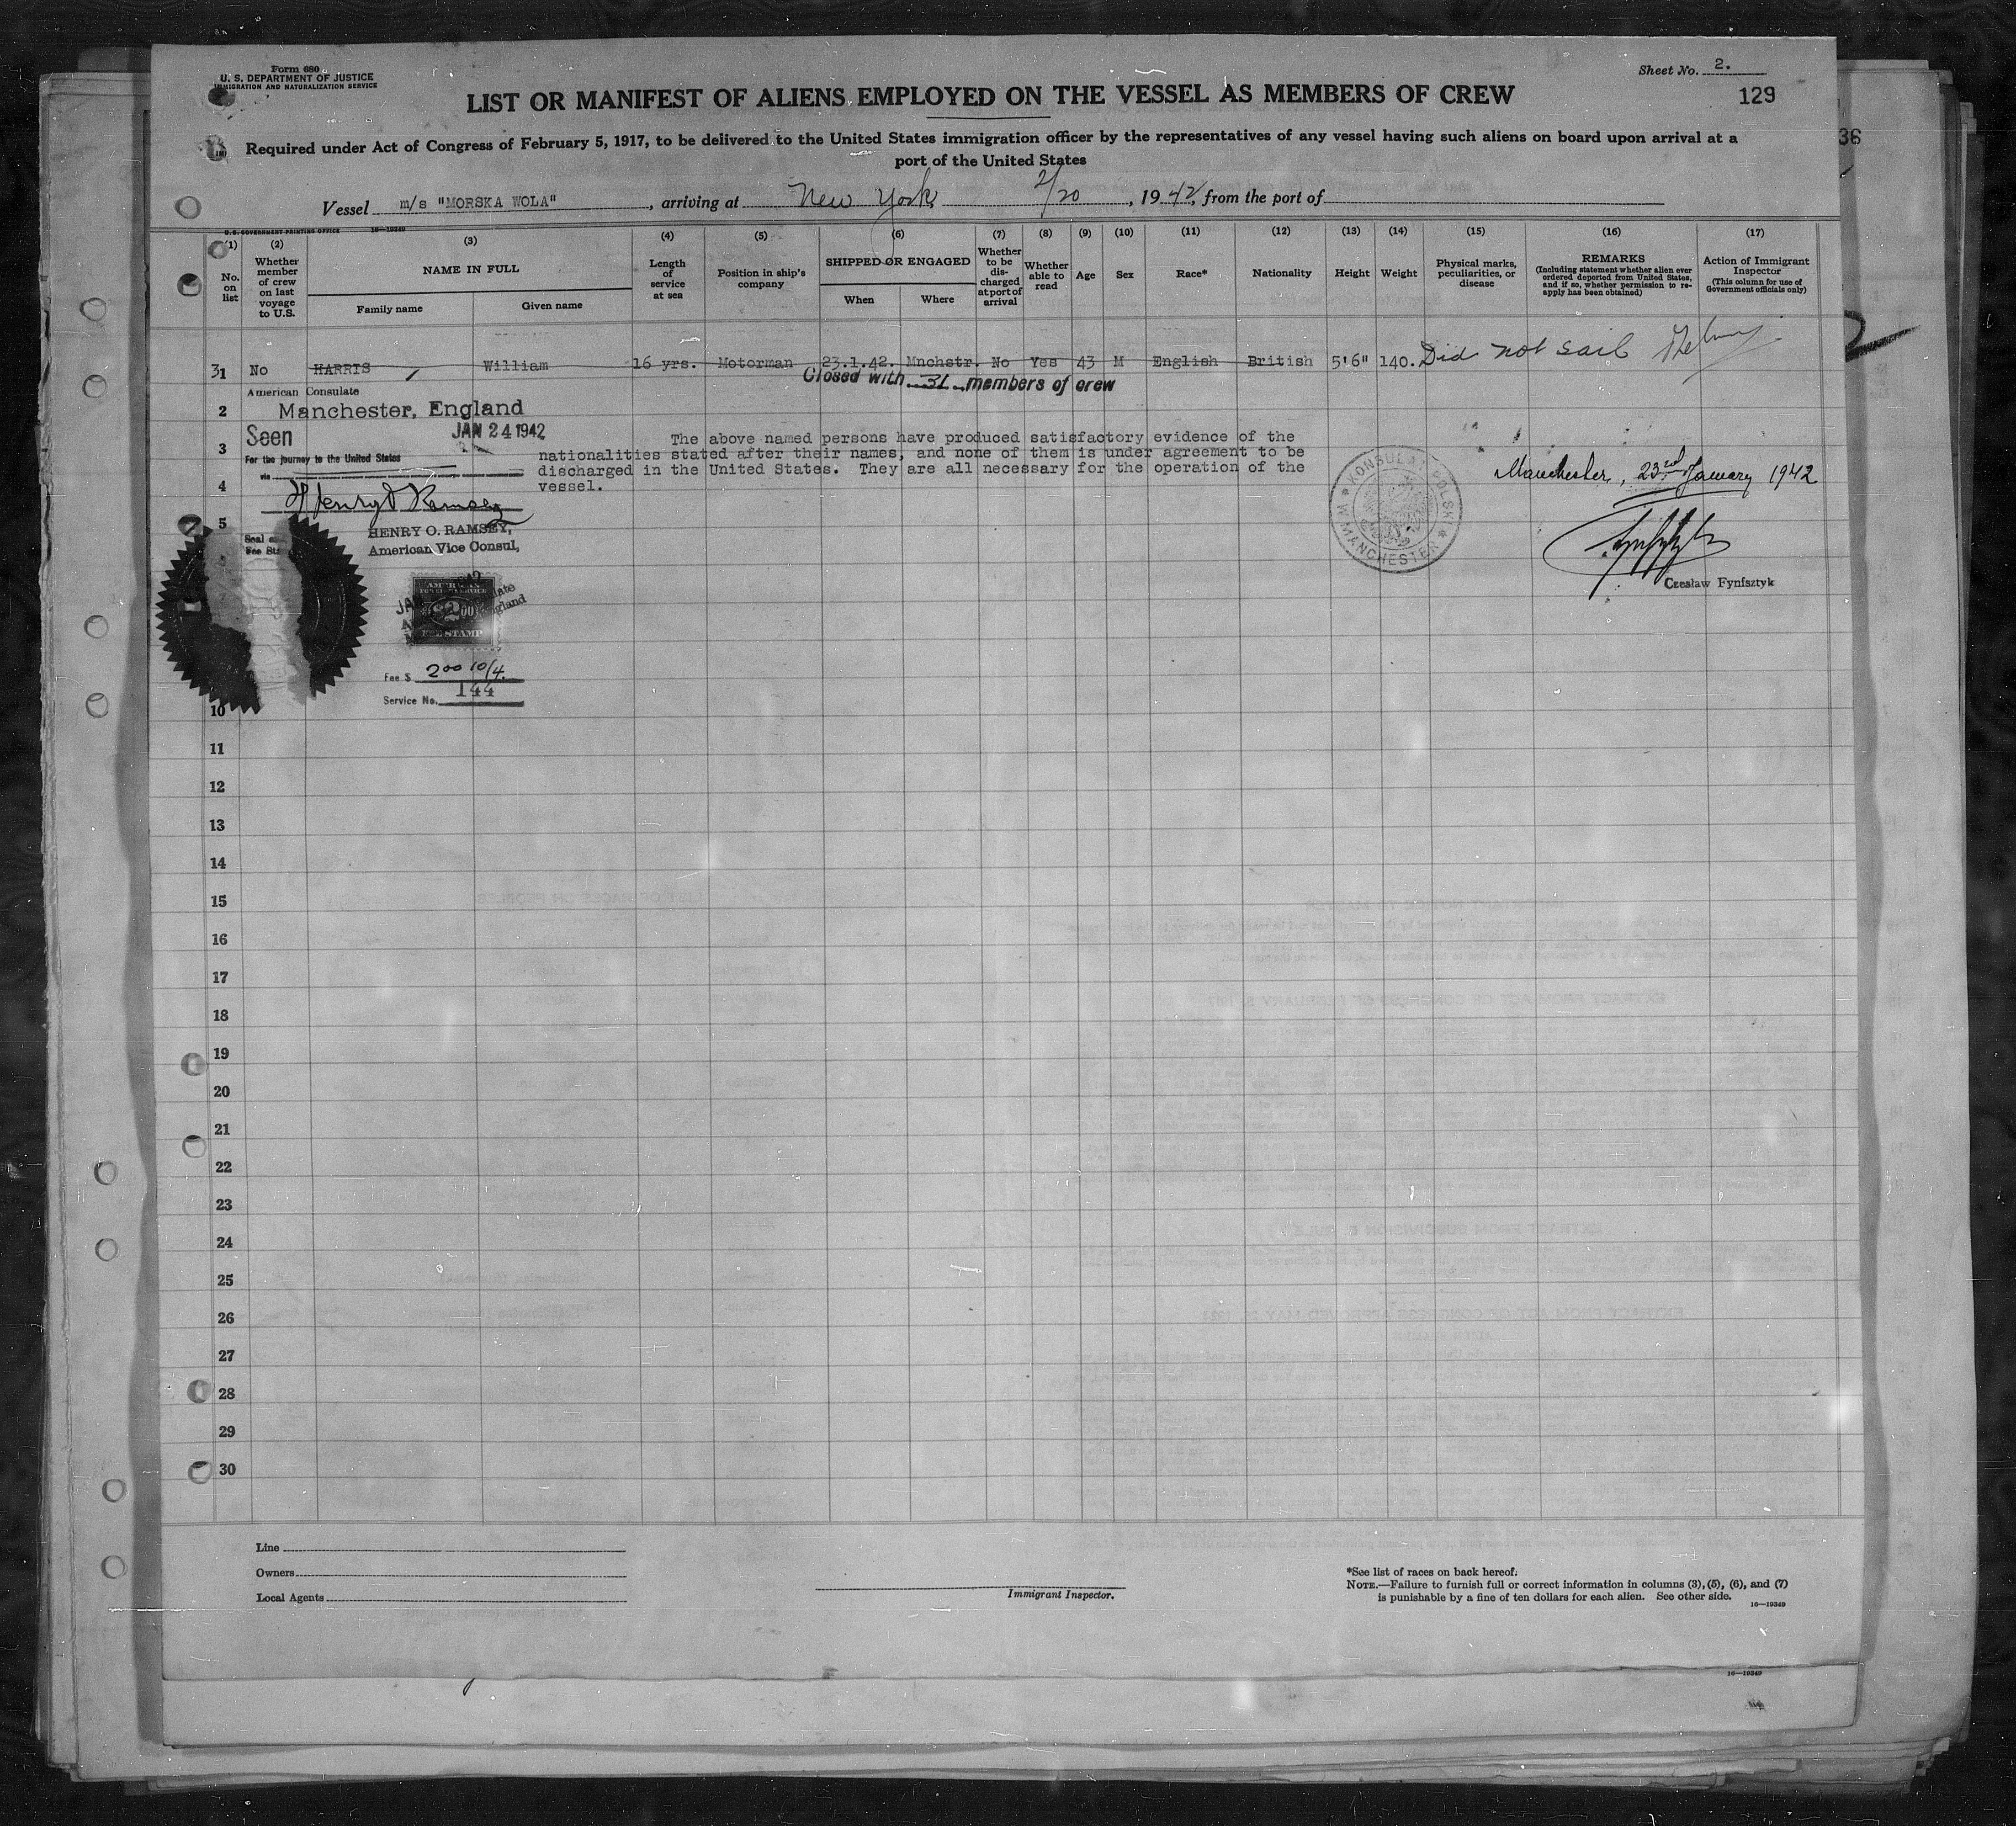 Form 680
U. S. DEPARTMENT OF JUSTICE
IMMIGRATION AND NATURALIZATION SERVICE
Sheet No. 2.
LIST OR MANIFEST OF ALIENS EMPLOYED ON THE VESSEL AS MEMBERS OF CREW
129
36
Required under Act of Congress of February 5, 1917, to be delivered to the United States immigration officer by the representatives of any vessel having such aliens on board upon arrival at a
port of the United States
Vessel m/s "MORSKA WOLA", arriving at New York 2/20, 1942, from the port of
U. S. GOVERNMENT PRINTING OFFICE 16—19349
(1) (2) (3) (4) (5) (6) (7) (8) (9) (10) (11) (12) (13) (14) (15) (16) (17)
No. on list
Whether member of crew on last voyage to U.S.
NAME IN FULL
Family name
Given name
Length of service at sea
Position in ship's company
SHIPPED OR ENGAGED
When
Where
Whether to be discharged at port of arrival
Whether able to read
Age
Sex
Race*
Nationality
Height
Weight
Physical marks, peculiarities, or disease
REMARKS
(Including statement whether alien ever ordered deported from United States, and if so, whether permission to reapply has been obtained)
Action of Immigrant Inspector
(This column for use of Government officials only)
31 No HARRIS, William 16 yrs. Motorman 23.1.42. Mnchstr. No Yes 43 M English British 5'6" 140. Did not sail
Closed with 31 members of crew
American Consulate
2 Manchester, England
Seen JAN 24 1942
3
For the journey to the United States
via
4
The above named persons have produced satisfactory evidence of the
nationalities stated after their names, and none of them is under agreement to be
discharged in the United States. They are all necessary for the operation of the
vessel.
KONSULAT POLSKI
W MANCHESTER
Manchester, 23rd January 1942
Czesław Fynfsztyk
Henry O Ramsey
5
HENRY O. RAMSEY,
American Vice Consul,
Seal
Fee
AMERICAN
FEE STAMP
Fee $ 2.00 10/4.
Service No. 144
10
11
12
13
14
15
16
17
18
19
20
21
22
23
24
25
26
27
28
29
30
Line
Owners
Local Agents
Immigrant Inspector.
*See list of races on back hereof.
NOTE.—Failure to furnish full or correct information in columns (3), (5), (6), and (7)
is punishable by a fine of ten dollars for each alien. See other side.
16—19349
16—19349